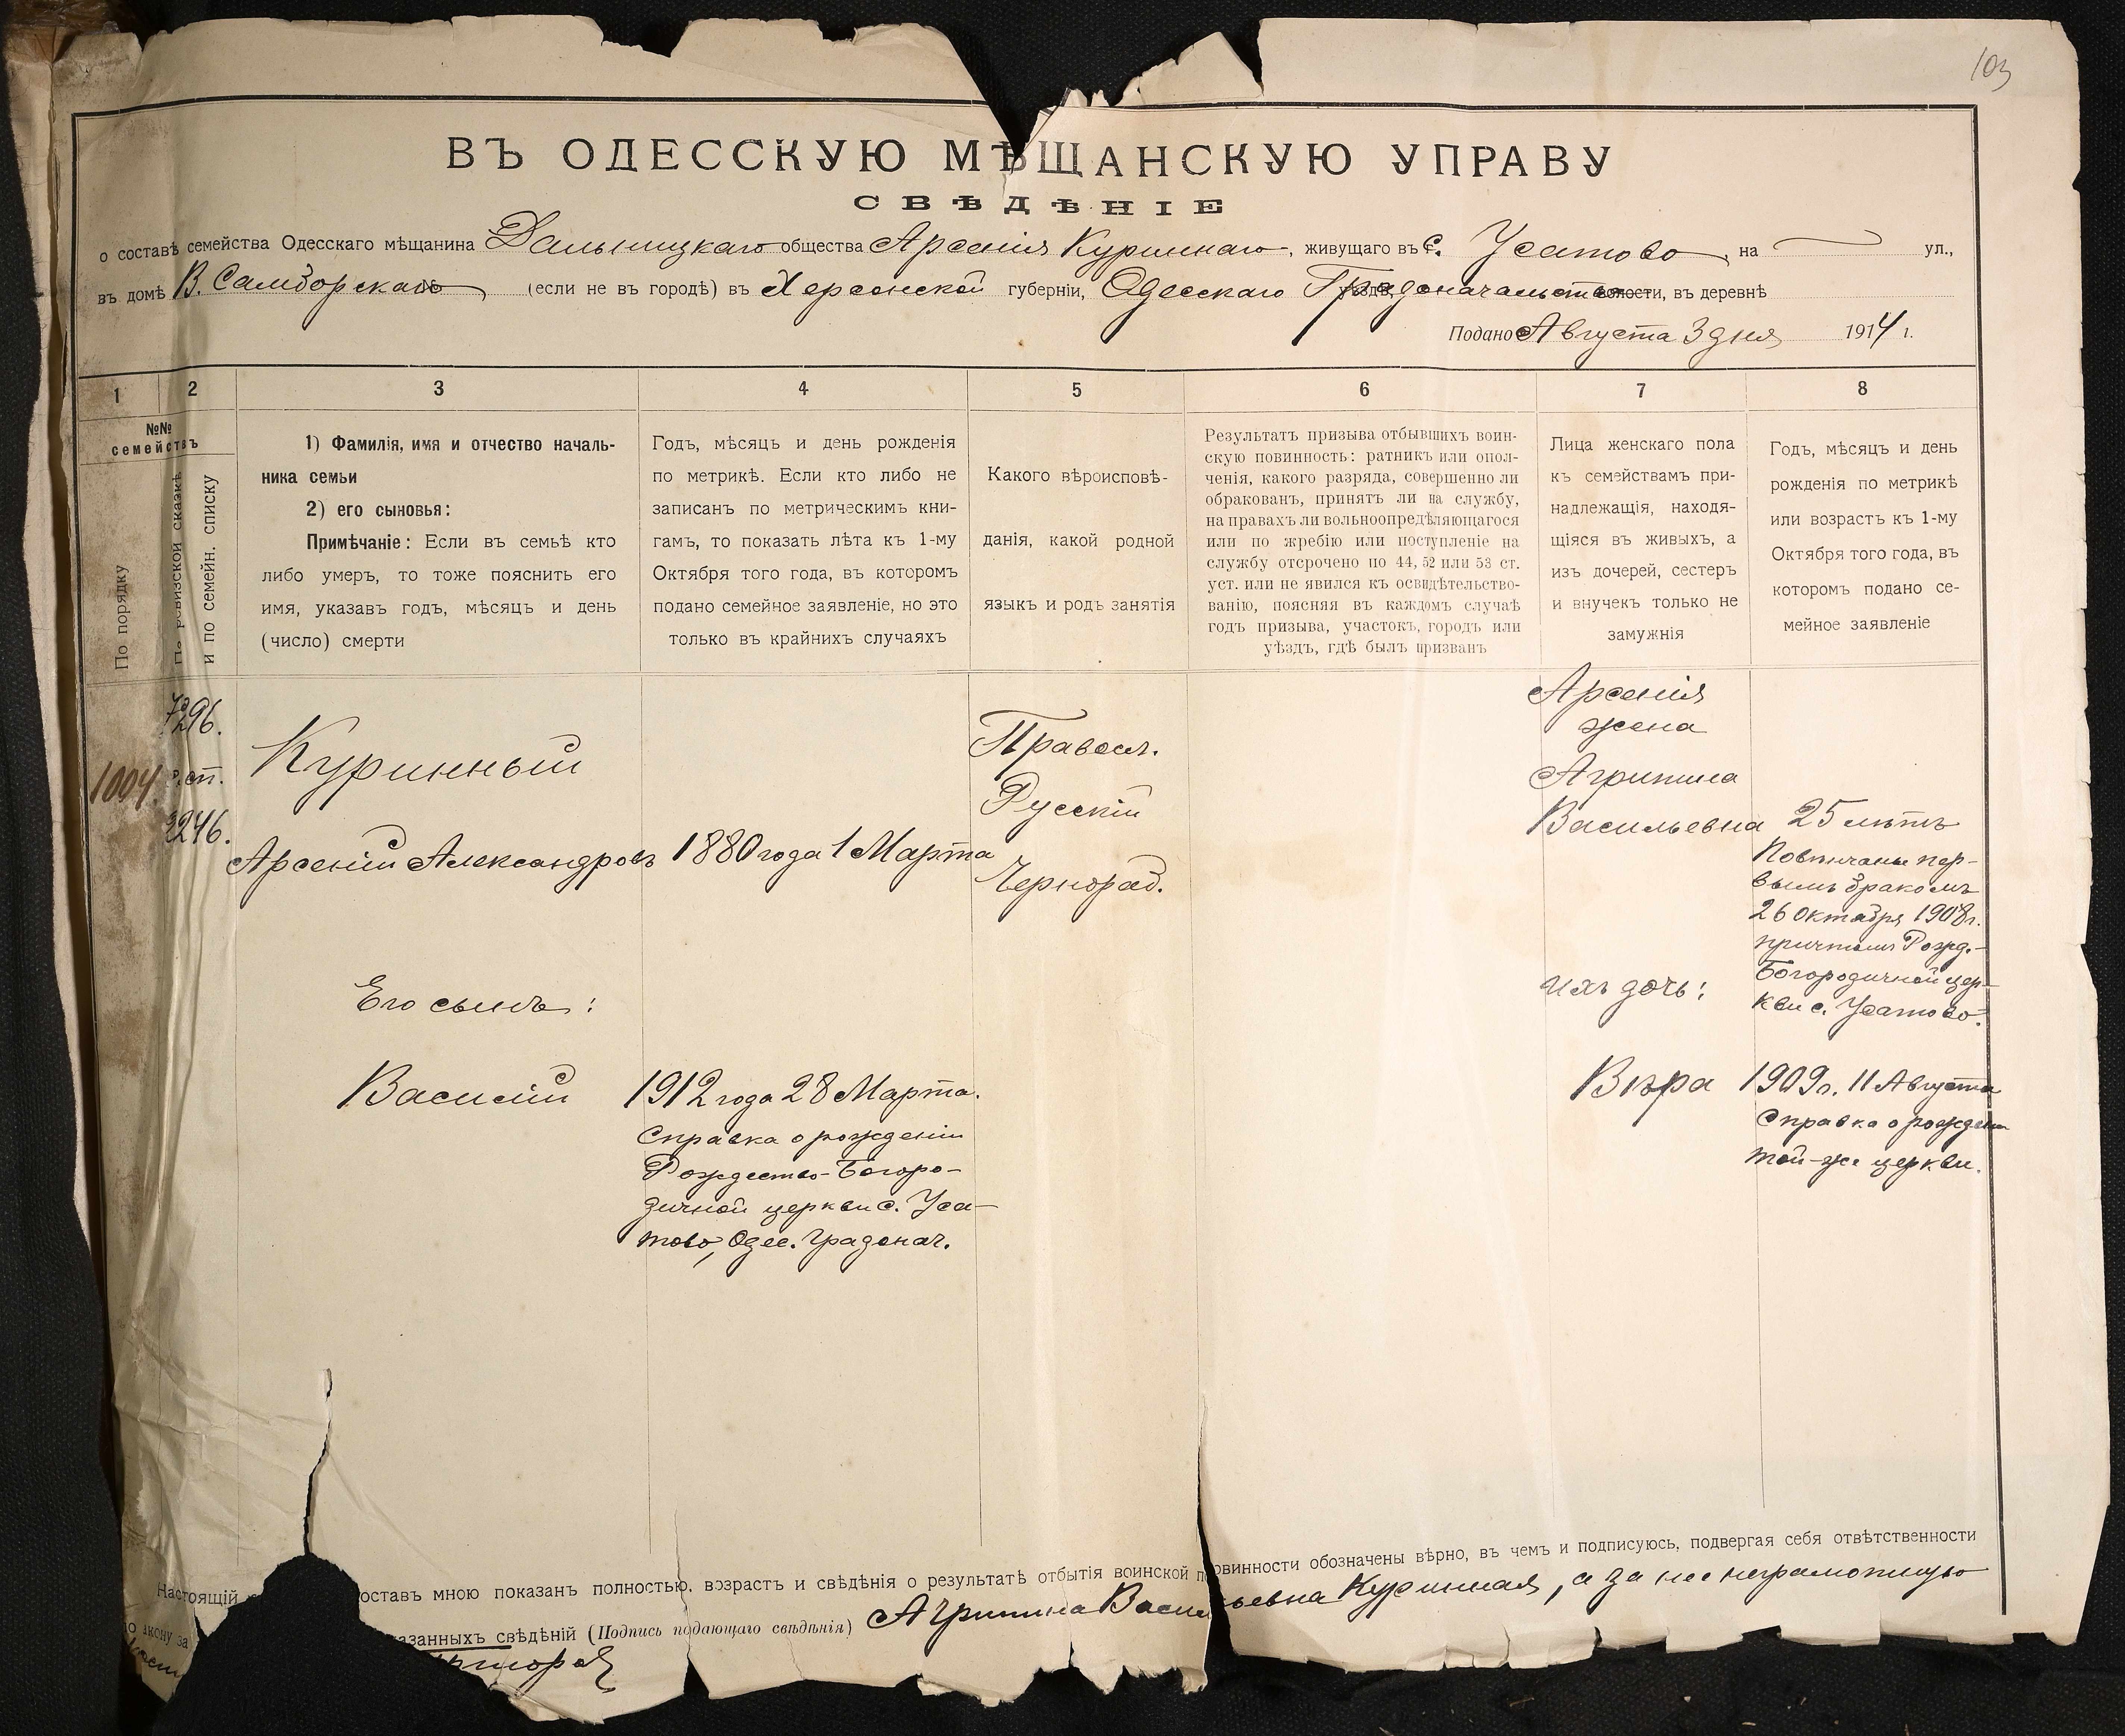 103
ВЪ ОДЕССКУЮ МѢЩАНСКУЮ УПРАВУ
СВѢДѢНІЕ
о составѣ семейства Одесскаго мѣщанина Дальницкаго общества Арсенія Куриннаго, живущаго въ с. Усатово, на ул.,
въ домѣ В. Самборскаго № (если не въ городѣ) въ Херсонской губерніи, Одесскаго уѣзда, Градоначальства волости, въ деревнѣ
Подано Августа 3 дня 1914 г.
1 2 3 4 5 6 7 8
№№
семействъ
По порядку
По ревизской сказкѣ
и по семейн. списку
1) Фамилія, имя и отчество началь-
ника семьи
2) его сыновья:
Примѣчаніе: Если въ семьѣ кто
либо умеръ, то тоже пояснить его
имя, указавъ годъ, мѣсяцъ и день
(число) смерти
Годъ, мѣсяцъ и день рожденія
по метрикѣ. Если кто либо не
записанъ по метрическимъ кни-
гамъ, то показать лѣта къ 1-му
Октября того года, въ которомъ
подано семейное заявленіе, но это
только въ крайнихъ случаяхъ
Какого вѣроисповѣ-
данія, какой родной
языкъ и родъ занятія
Результатъ призыва отбывшихъ воин-
скую повинность: ратникъ или опол-
ченія, какого разряда, совершенно ли
обракованъ, принятъ ли на службу,
на правахъ ли вольноопредѣляющагося
или по жребію или поступленіе на
службу отсрочено по 44, 52 или 53 ст.
уст. или не явился къ освидѣтельство-
ванію, поясняя въ каждомъ случаѣ
годъ призыва, участокъ, городъ или
уѣздъ, гдѣ былъ призванъ
Лица женскаго пола
къ семействамъ при-
надлежащія, находя-
щіяся въ живыхъ, а
изъ дочерей, сестеръ
и внучекъ только не
замужнія
Годъ, мѣсяцъ и день
рожденія по метрикѣ
или возрастъ къ 1-му
Октября того года, въ
которомъ подано се-
мейное заявленіе
296.
1004
сп.
2246.
Куринный
Арсеній Александровъ
1880 года 1 Марта
Правосл.
Русскій
Чернораб.
Его сынъ:
Василій
1912 года 28 Марта.
Справка о рожденіи
Рождество-Богоро-
дичной церкви с. Уса-
тово, Одес. Градонач.
Арсенія
жена
Агрипина
Васильевна
25 лѣтъ
Повѣнчаны пер-
вымъ бракомъ
26 Октября 1908 г.
причтомъ Рожд.-
Богородичной цер-
кви с. Усатово.
ихъ дочь:
Вѣра
1909 г. 11 Августа
Справка о рожденіи
той-же церкви.
Настоящій составъ мною показанъ полностью, возрастъ и свѣдѣнія о результатѣ отбытія воинской повинности обозначены вѣрно, въ чемъ и подписуюсь, подвергая себя отвѣтственности
по закону за казанныхъ свѣдѣній (Подпись подающаго свѣдѣнія) Агрипина Васильевна Куринная, а за нее неграмотную